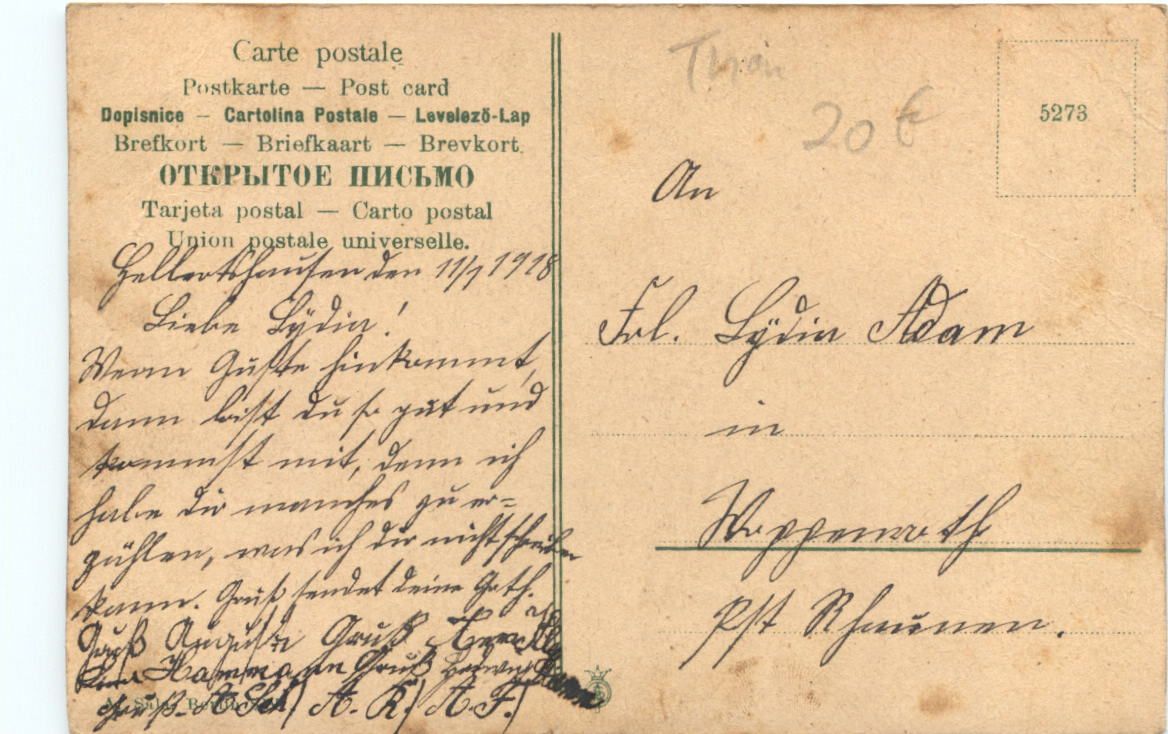 Carte postale
Postkarte — Post card
Dopisnice — Cartolina Postale — Levelező-Lap
Brefkort — Briefkaart — Brevkort
ОТКРЫТОЕ ПИСЬМО
Tarjeta postal — Carto postal
Union postale universelle.
Hellertshausen den 11/7 1918
Liebe Lÿdia!
Wenn Guste hinkommt,
dann bist du so gut und
kommst mit, denn ich
habe dir manches zu er=
zählen, was ich dir nicht schreiben
kann. Gruß sendet deine Goth.
Gruß Augusta Gruß
Hammann Gruß Hedwig
Gruß A. K. A. F.
Thon
20 €
5273
An
Frl. Lÿdia Adam
in
Woppenroth
Pst Rhaunen.